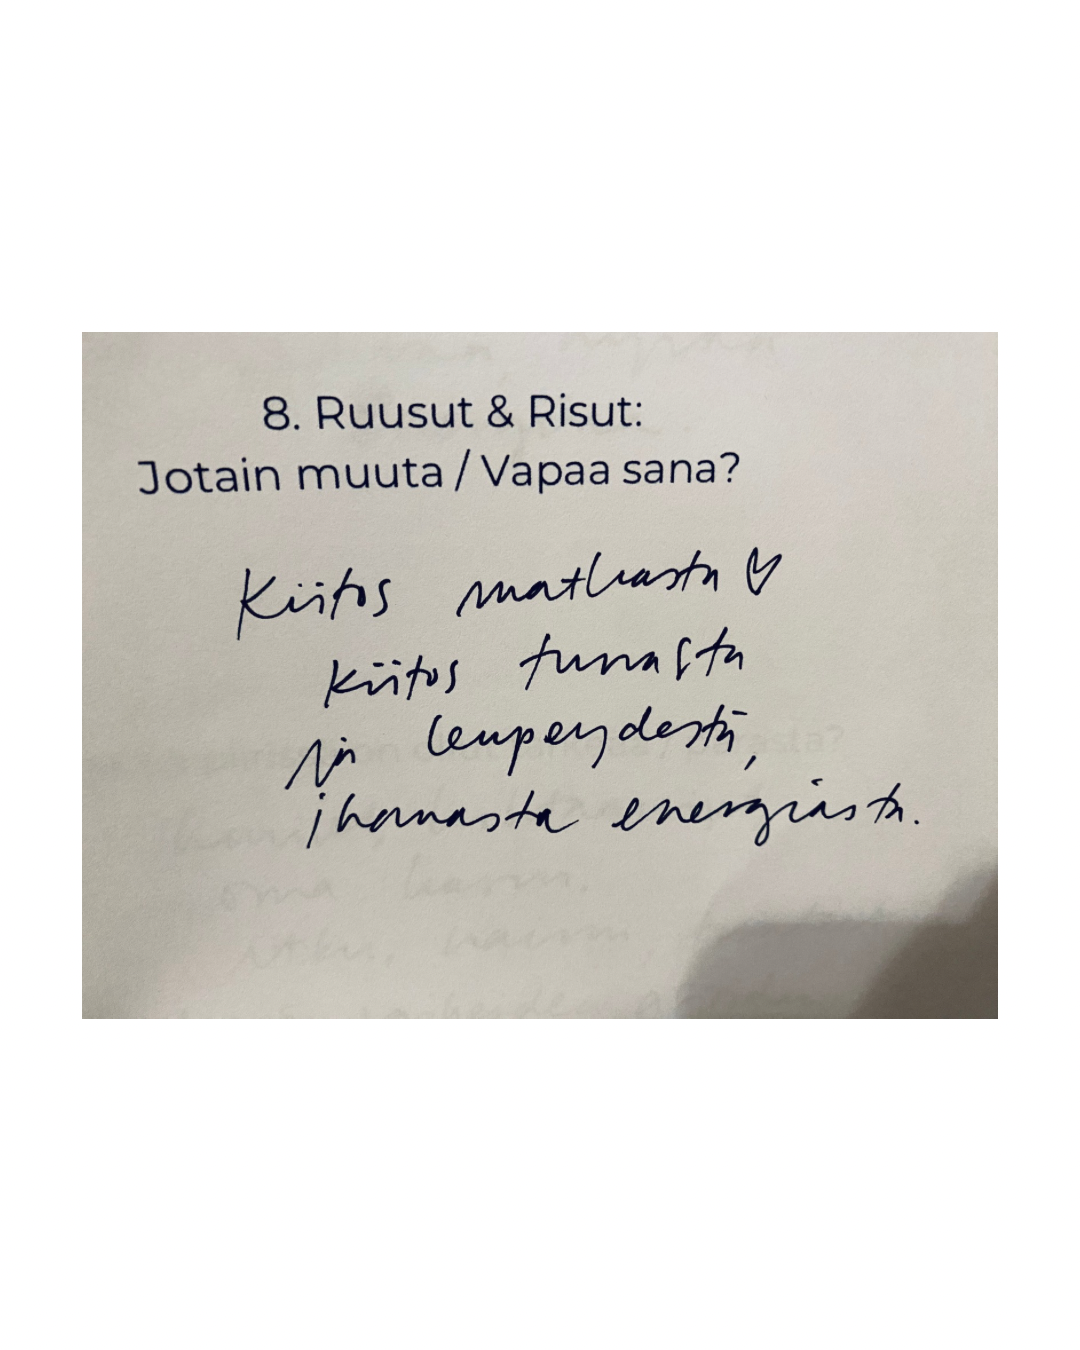 8. Ruusut & Risut:
Jotain muuta / Vapaa sana?
Kiitos matkasta ♡
Kiitos turvasta
ja lempeydestä,
ihanasta energiasta.